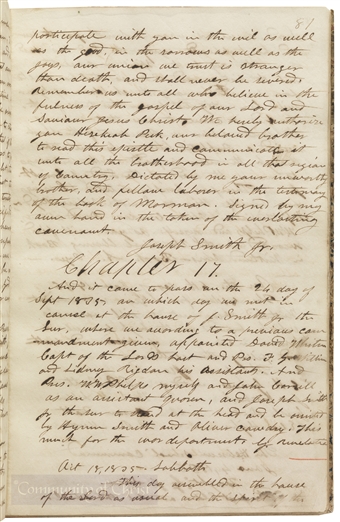 81
participate with you in the evil as well
as the good, in the sorrows as well as the
joys, our union we trust is stronger
than death, and shall never be severed.
Remember us unto all who believe in the
fulness of the gospel of our Lord and
Saviour Jesus Christ. We hereby authorize
you Hezekiah Peck, our beloved brother
to read this epistle and communicate it
unto all the brotherhood in all that region
of Country. Dictated by me your unworthy
brother, and fellow laborer in the testimony
of the book of Mormon. Signed by my
own hand in the token of the everlasting
covenant.
Joseph Smith Jr.
Chapter 17.
And it came to pass on the 24 day of
Sept 1835, on which day we met in
council at the house of J. Smith jr the
Seer, where we according to a previous com
mandment given, appointed David Whitmer
Capt of the Lords host and Prs. F. G. Williams
and Sidney Rigdon his Assistants. And
Pres. W W Phelps, myself and John Corrill
as an assistant Quorum, and Joseph Smith
jr the seer to stand at the head and be assisted
by Hyrum Smith and Oliver Cowdery. This
much for the war department. By revelation
Oct 18, 1835 Sabbath
This day assembled in the house
of the Lord as usual and the spirit of the
Community of Christ